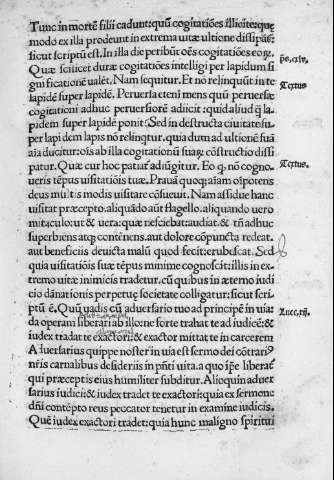 Tunc in mortẽ filii cadunt: quũ cogitatiões illicitę: quę
modo ex illa prodeunt in extrema uitæ ultione dissipãtˀ:
sicut scriptũ est. In illa die peribũt oẽs cogitatiões eoꝝ.
Quæ scilicet duræ cogitatiões intelligi per lapidum si
gnificationẽ ualẽt. Nam sequitur. Et nõ relinquũt in te
lapidẽ super lapidẽ. Peruersa etenĩ mens quũ peruersæ
cogitationi adhuc peruersiorẽ adiicit: quid aliud q̃ la-
pidem super lapidẽ ponit: Sed in destructa ciuitate su-
per lapidem lapis nõ relinqtur. quia dum ad ultionẽ suã
aĩa ducitur: oĩs ab illa cogitationũ suaꝝ cõstructio dissi
patur. Quæ cur hoc patiatˀ adiũgitur. Eo q. nõ cogno-
ueris tẽpus uisitatiõis tuæ. Prauã quoq; aĩam oĩpotens
deus multis modis uisitare cõsueuit. Nam assidue hanc
uisitat præcepto. aliquãdo aũt flagello. aliquando uero
miraculo: ut & uera: quæ nesciebat: audiat. & tñ adhuc
superbiens atq; contẽnens. aut dolore cõpuncta redeat.
aut beneficiis deuicta malũ quod fecit: erubescat. Sed
quia uisitatiõis suæ tẽpus minime cognoscit: illis in ex-
tremo uitæ inimicis tradetur. cũ quibus in æterno iudi
cio dãnationis perpetuę societate colligatur: sicut scri-
ptũ ẽ. Quũ uadis cũ aduersario tuo ad principẽ in uia:
da operam liberari ab illo: ne forte trahat te ad iudicẽ: &
iudex tradat te exactori: & exactor mittat te in carcerem
Aduersarius quippe noster in uia est sermo dei cõtrariꝰ
nr̃is carnalibus desideriis in pñti uita. a quo ipse liberatˀ
qui præceptis eius humiliter subditur. Alioquin aduer
sarius iudici: & iudex tradet te exactori: quia ex sermone
dñi contẽpto reus peccator tenetur in examine iudicis.
Quẽ iudex exactori tradet: quia hunc maligno spiritui
Textus
Textus
Luce. xij.